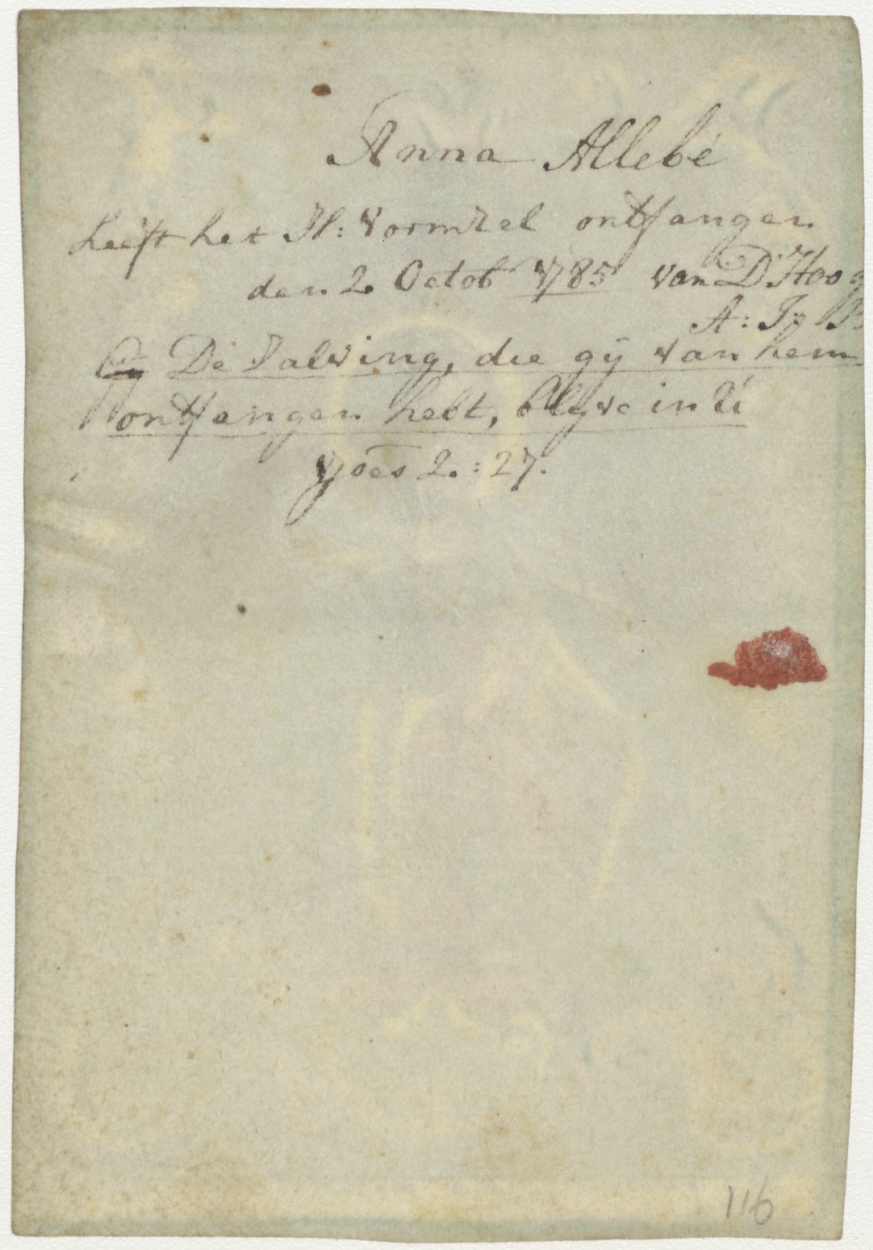 Anna Allebé
heeft het H: Vormzel ontfangen
den 2 Octob 1785 van D'Hoog
A: J:
De Zalving, die gij van hem
ontfangen hebt, blijve in U
Joës 2:27.
116